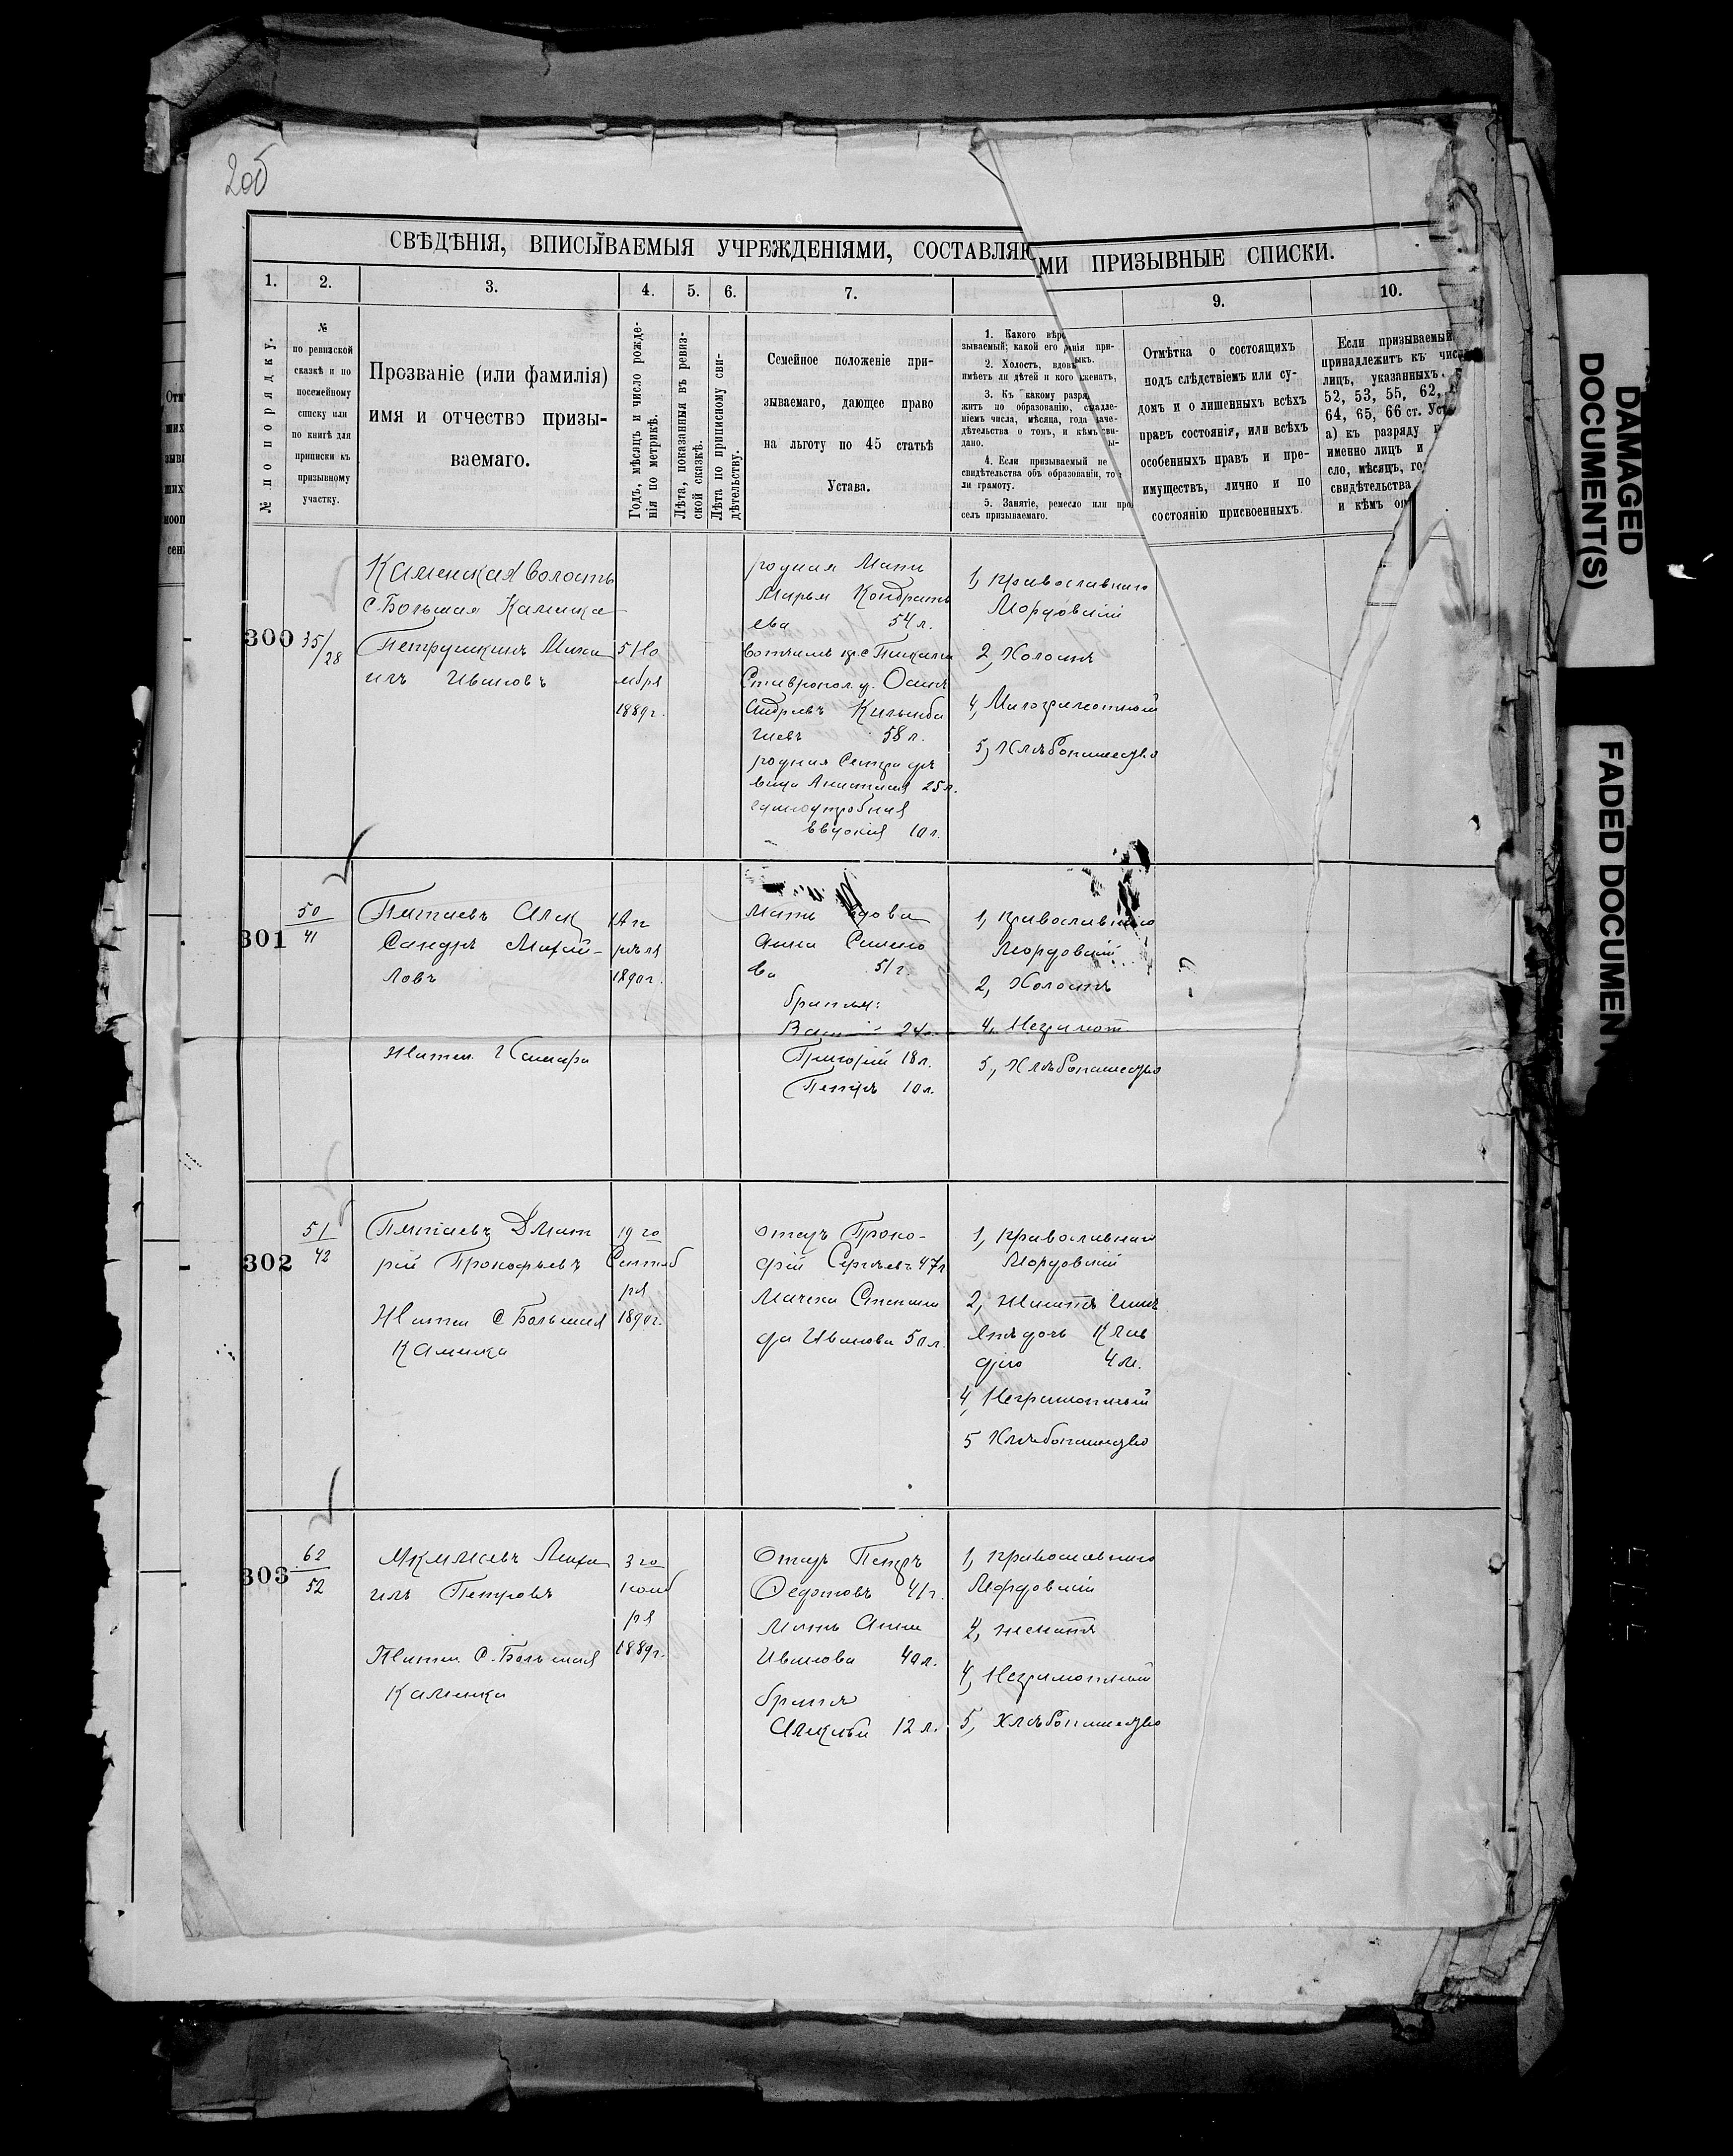 205
СВѢДѢНІЯ, ВПИСЫВАЕМЫЯ УЧРЕЖДЕНІЯМИ, СОСТАВЛЯЮ
МИ ПРИЗЫВНЫЕ СПИСКИ.
1. 2. 3. 4. 5. 6. 7. 9. 10.
№ по порядку.
№
по ревизской
сказкѣ и по
посемейному
списку или
по книгѣ для
приписки къ
призывному
участку.
Прозваніе (или фамилія)
имя и отчество призы-
ваемаго.
Годъ, мѣсяцъ и число рожде-
нія по метрикѣ.
Лѣта, показанныя въ ревиз-
ской сказкѣ.
Лѣта по приписному сви-
дѣтельству.
Семейное положеніе при-
зываемаго, дающее право
на льготу по 45 статьѣ
Устава.
1. Какого вѣр
зываемый; какой его
2. Холостъ, вдовъ
имѣетъ ли дѣтей и кого
3. Къ какому разря
житъ по образованію, съ
ніемъ числа, мѣсяца, года
дѣтельства о томъ, и кѣмъ
дано.
4. Если призываемый не
свидѣтельства объ образованіи, то
ли грамоту.
5. Занятіе, ремесло или про
селъ призываемаго.
Отмѣтка о состоящихъ
подъ слѣдствіемъ или су-
домъ и о лишенныхъ всѣхъ
правъ состоянія, или всѣхъ
особенныхъ правъ и пре-
имуществъ, лично и по
состоянію присвоенныхъ
Если призываемый
принадлежитъ къ числу
лицъ, указанныхъ
52, 53, 55, 62,
64, 65, 66 ст. Уст
а) къ разряду
именно лицъ и
сло, мѣсяцъ, го
свидѣтельства
и кѣмъ
300
35/28
Каменская Волость
с. Большая Каменка
Петрушкинъ Миха
илъ Ивановъ
5 Но
ября
1889 г.
родная Мать
Марья Кондрать
ева 54 л.
Ставропол. у. Осипъ
Андреевъ
58 л.
родная Сестра дѣ
вица Анастасія 25 л.
единоутробная
Евдокія 10 л.
1, Православнаго
Мордовскій
2, Холостъ
4, Малограмотный
5, Хлѣбопашество
301
50
41
Пятаевъ Алек
сандръ Михай-
ловъ
Жител. Самара
1 Ап
рѣля
1890 г.
Мать вдова
Анна Семено
ва 51 г.
братья:
24 л.
Григорій 18 л.
Петръ 10 л.
1, Православнаго
Мордовскій
2, Холостъ
4, Неграмот
5, Хлѣбопашество
302
51
42
Пятаевъ Дмит
рій Прокофьевъ
Жител с Большая
Каменка
19 го
Сентяб
ря
1890 г.
отецъ Проко-
фій Сергѣевъ 47 л
Мачеха Степани
да Иванова 50 л.
1, Православнаго
Мордовскій
2, Женатъ имѣ
етъ дочь Клав
дію 4 м.
4, Неграмотный
5 Хлѣбопашество
303
62
52
Якимаевъ Миха
илъ Петровъ
Жител. С. Большая
Каменка
3 го
нояб
ря
1889 г.
Отецъ Петръ
Федотовъ 41 г.
Мать Анна
Иванова 40 л.
братъ
Алексѣй 12 л.
1, Православнаго
Мордовскій
2, женатъ
4, Неграмотный
5, Хлѣбопашество
DAMAGED
DOCUMENT(S)
FADED DOCUMEN